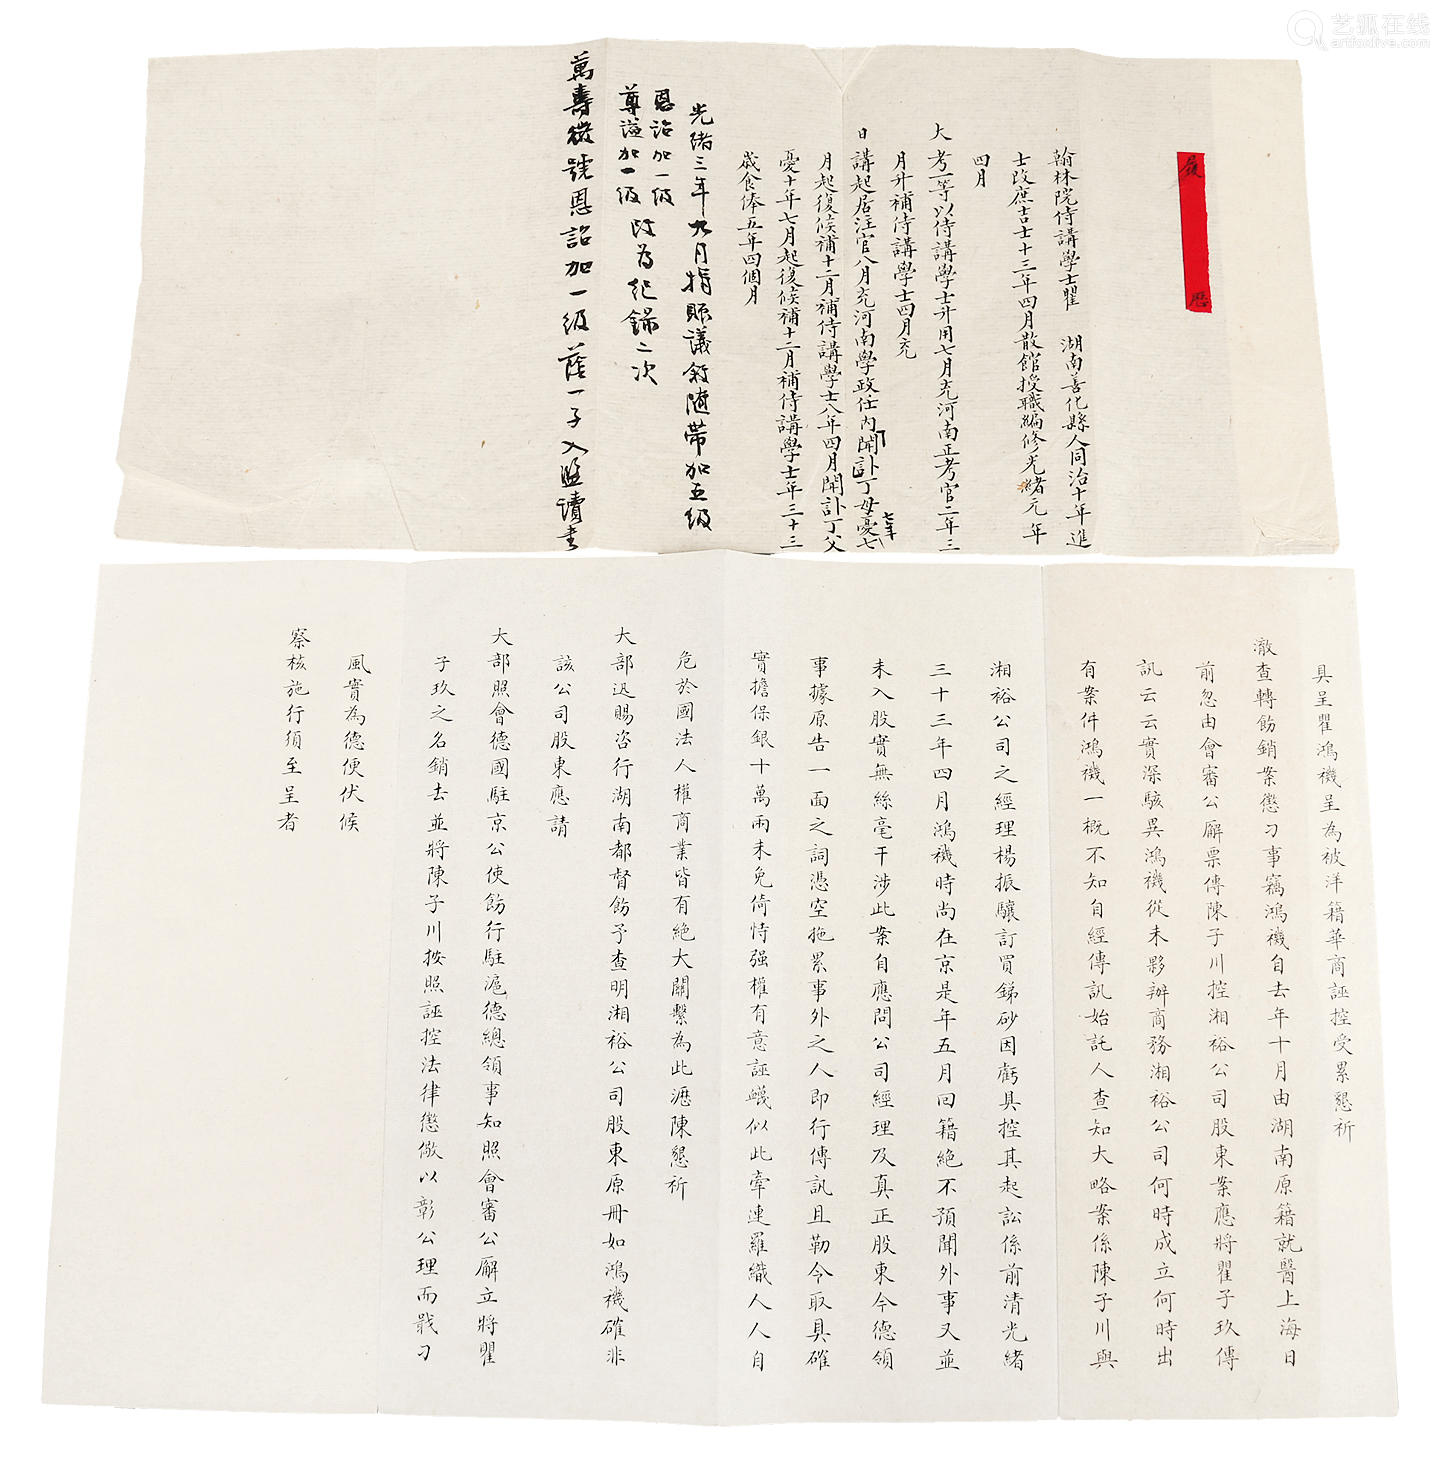 艺狐在线
artfoxlive.com
履歷
翰林院侍講學士瞿 湖南善化縣人同治十年進
士改庶吉士十三年四月散館授職編修光緒元年
四月
大考一等以侍講學士升用七月充河南正考官二年三
月升補侍講學士四月充
日講起居注官八月充河南學政任內聞訃丁母憂七
七年
月起復候補十二月補侍講學士八年四月聞訃丁父
憂十年七月起復候補十二月補侍講學士年三十三
歲食俸五年四個月
光緒三年九月捐賑議敘隨帶加五級
恩詔加一級
尊謚加一級 改為紀錄二次
萬壽徽號恩詔加一級蔭一子入監讀書
具呈瞿鴻禨呈為被洋籍華商誣控受累懇祈
澈查轉飭銷案懲刁事竊鴻禨自去年十月由湖南原籍就醫上海日
前忽由會審公廨票傳陳子川控湘裕公司股東案應將瞿子玖傳
訊云云實深駭異鴻禨從未夥辦商務湘裕公司何時成立何時出
有案件鴻禨一概不知自經傳訊始託人查知大略案係陳子川與
湘裕公司之經理楊振驤訂買銻砂因虧具控其起訟係前清光緒
三十三年四月鴻禨時尚在京是年五月回籍絕不預聞外事又並
未入股實無絲毫干涉此案自應問公司經理及真正股東今德領
事據原告一面之詞憑空拖累事外之人即行傳訊且勒令取具確
實擔保銀十萬兩未免倚恃强權有意誣衊似此牽連羅織人人自
危於國法人權商業皆有絕大關繫為此瀝陳懇祈
大部迅賜咨行湖南都督飭予查明湘裕公司股東原冊如鴻禨確非
該公司股東應請
大部照會德國駐京公使飭行駐滬德總領事知照會審公廨立將瞿
子玖之名銷去並將陳子川按照誣控法律懲儆以彰公理而戢刁
風實為德便伏候
察核施行須至呈者